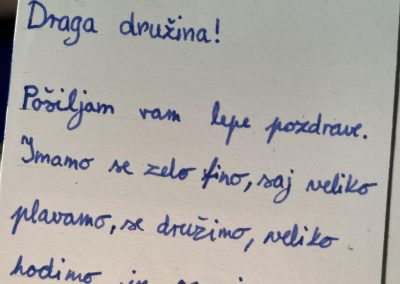 Draga družina!
Pošiljam vam lepe pozdrave.
Imamo se zelo fino, saj veliko
plavamo, se družimo, veliko
hodimo in